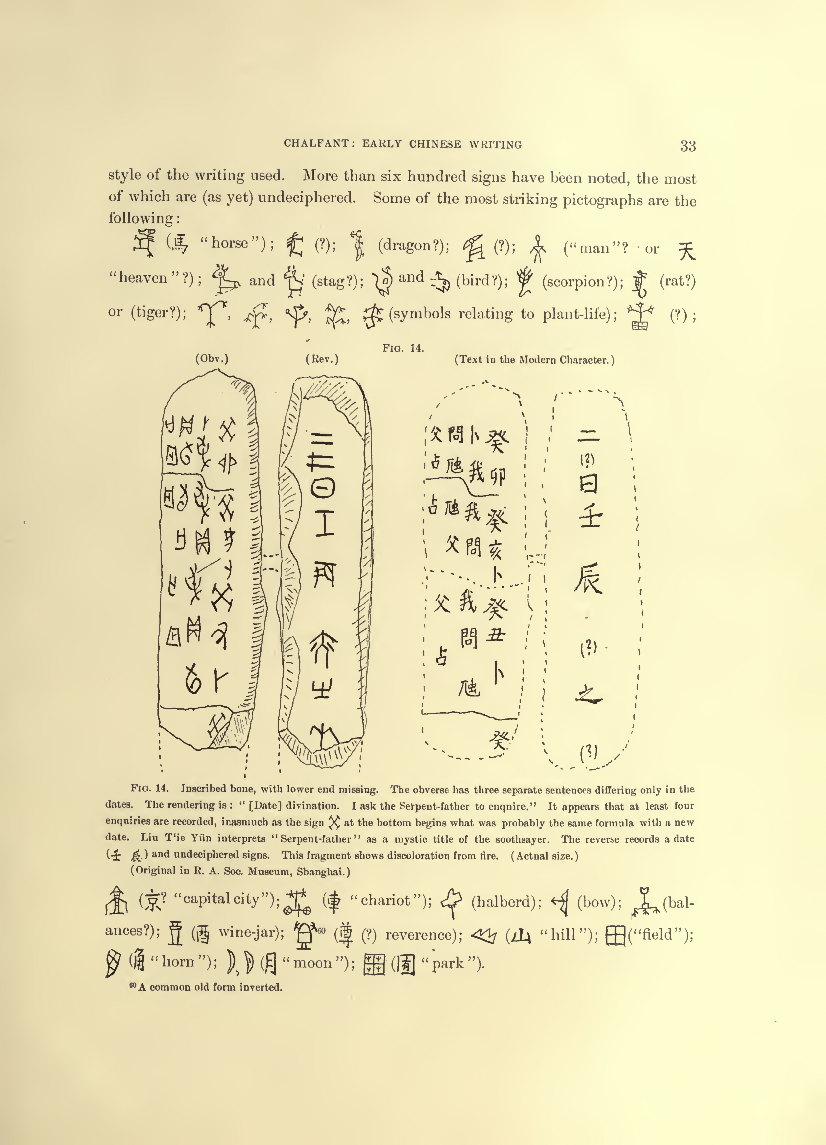 CHALFANT: EARLY CHINESE WRITING 33
style of the writing used. More than six hundred signs have been noted, the most
of which are (as yet) undeciphered. Some of the most striking pictographs are the
following:
(馬 "horse"); (?); (dragon?); (?); ("man"? or 天
"heaven"?); and (stag?); and (bird?); (scorpion?); (rat?)
or (tiger?); , , , , (symbols relating to plant-life); (?);
FIG. 14.
(Obv.) (Rev.) (Text in the Modern Character.)
癸卯
卜我
問虺
父占
癸亥
卜
我問
虺父
占
癸丑卜
我問虺
父占
癸
二(?)日壬辰(?)之(?)
FIG. 14. Inscribed bone, with lower end missing. The obverse has three separate sentences differing only in the
dates. The rendering is: "[Date] divination. I ask the Serpent-father to enquire." It appears that at least four
enquiries are recorded, inasmuch as the sign at the bottom begins what was probably the same formula with a new
date. Liu T'ie Yün interprets "Serpent-father" as a mystic title of the soothsayer. The reverse records a date
(壬辰) and undeciphered signs. This fragment shows discoloration from fire. (Actual size.)
(Original in R. A. Soc. Museum, Shanghai.)
(京? "capital city"); (車 "chariot"); (halberd); (bow); (bal-
ances?); (酒 wine-jar); 60 (尊 (?) reverence); (山 "hill"); ("field");
(角 "horn"); , (月 "moon"); (囿 "park").
60 A common old form inverted.